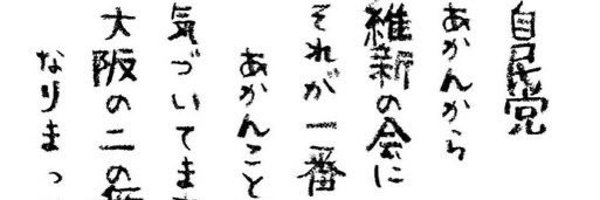 自民党
あかんから
維新の会に
それが一番
あかんこと
気づいてま
大阪の二の
なりまっ